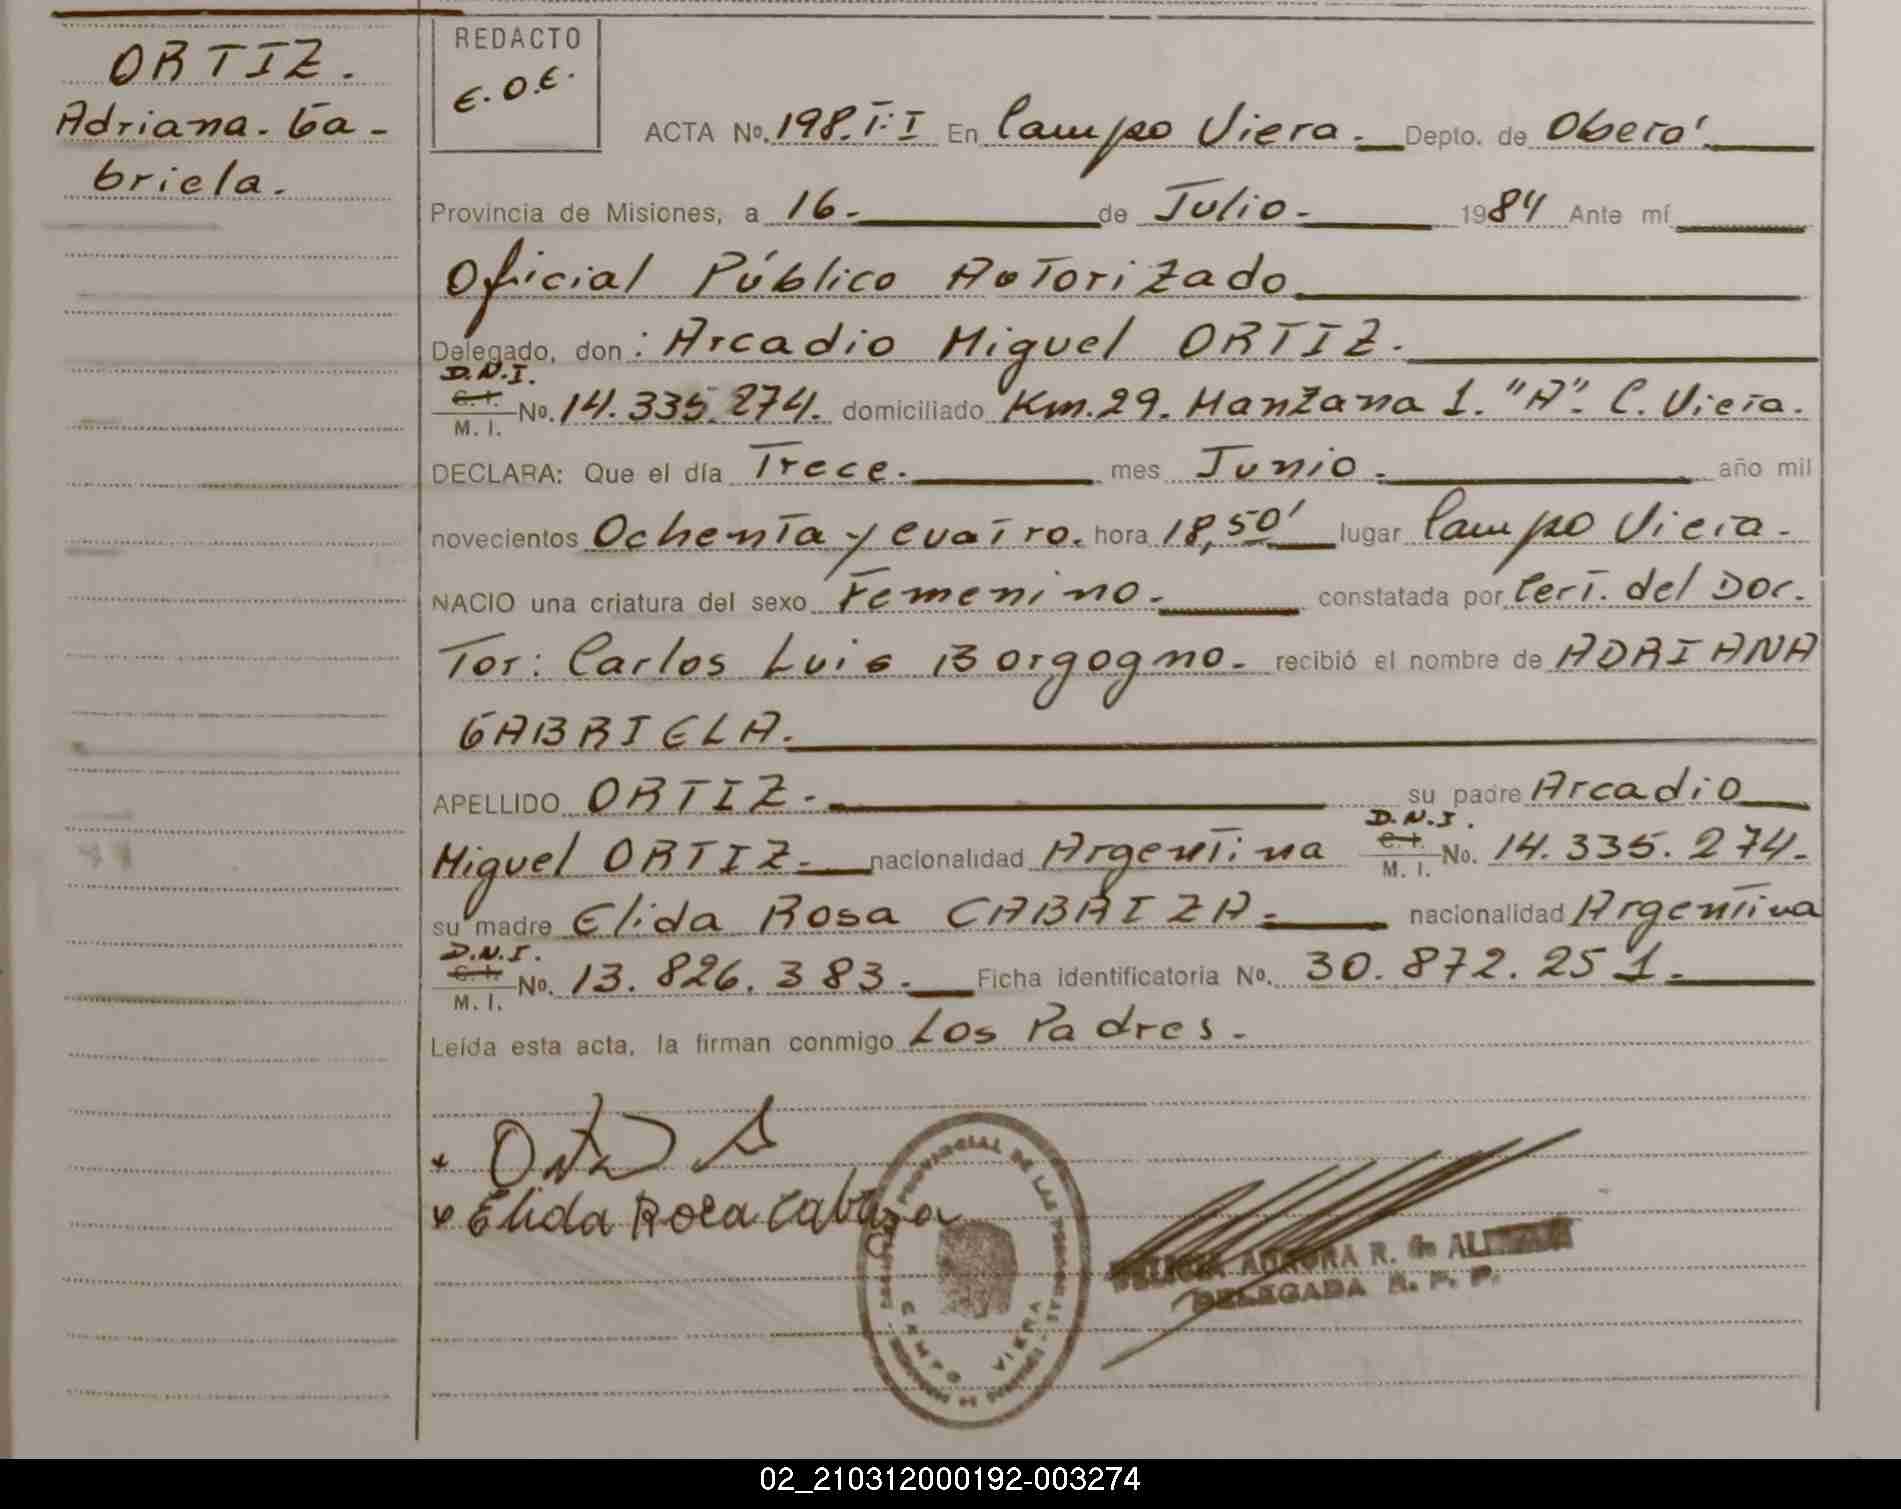 ORTIZ.
Adriana. Ga-
briela.
REDACTO
E.O.E.
ACTA No. 198.T:I En Campo Viera. Depto. de Oberá.
Provincia de Misiones, a 16. de Julio. 1984 Ante mí
Oficial Público Autorizado
Delegado, don: Arcadio Miguel ORTIZ.
D.N.I.
C. I.
M. I. No. 14.335.274. domiciliado Km.29. Manzana 1."A". C. Viera.
DECLARA: Que el día Trece. mes Junio. año mil
novecientos Ochenta y cuatro. hora 18,50' lugar Campo Viera.
NACIO una criatura del sexo Femenino. constatada por Cert. del Doc.
Tor: Carlos Luis Borgogno. recibió el nombre de ADRIANA
GABRIELA.
APELLIDO ORTIZ. su padre Arcadio
Miguel ORTIZ. nacionalidad Argentina D.N.I. C. I. M. I. No. 14.335.274.
su madre Elida Rosa CABRIZA. nacionalidad Argentina
D.N.I.
C. I.
M. I. No. 13.826.383. Ficha identificatoria No. 30.872.251.
Leída esta acta, la firman conmigo Los Padres.
Elida Rosa Cabriza
PROVINCIAL DE LAS
CAMPO VIERA
AURORA R. de
DELEGADA R. P. P.
02_210312000192-003274